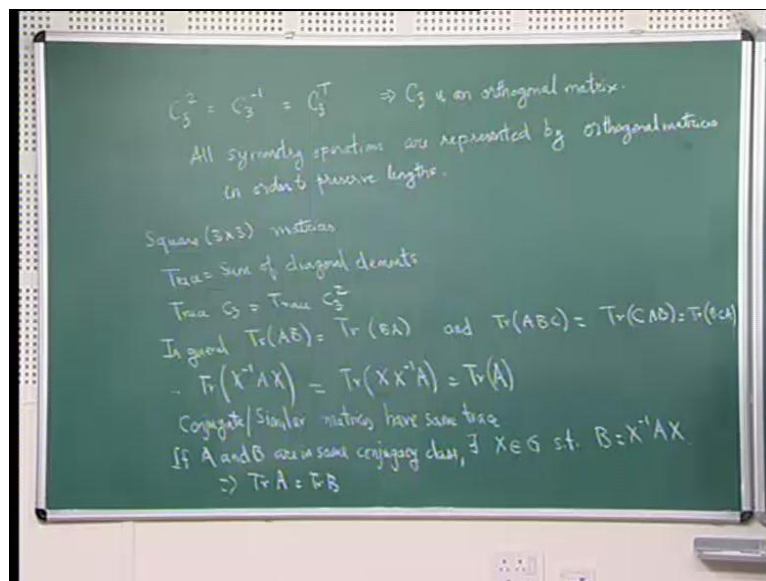 C₃² = C₃⁻¹ = C₃ᵀ ⇒ C₃ is an orthogonal matrix.
All symmetry operations are represented by orthogonal matrices
in order to preserve lengths.
Square (3×3) matrices
Trace = Sum of diagonal elements
Trace C₃ = Trace C₃²
In general Tr(AB) = Tr(BA) and Tr(ABC) = Tr(CAB) = Tr(BCA)
Tr(X⁻¹AX) = Tr(XX⁻¹A) = Tr(A)
Conjugate/Similar matrices have same trace
If A and B are in same conjugacy class, ∃ X∈G s.t. B = X⁻¹AX.
⇒ Tr A = Tr B